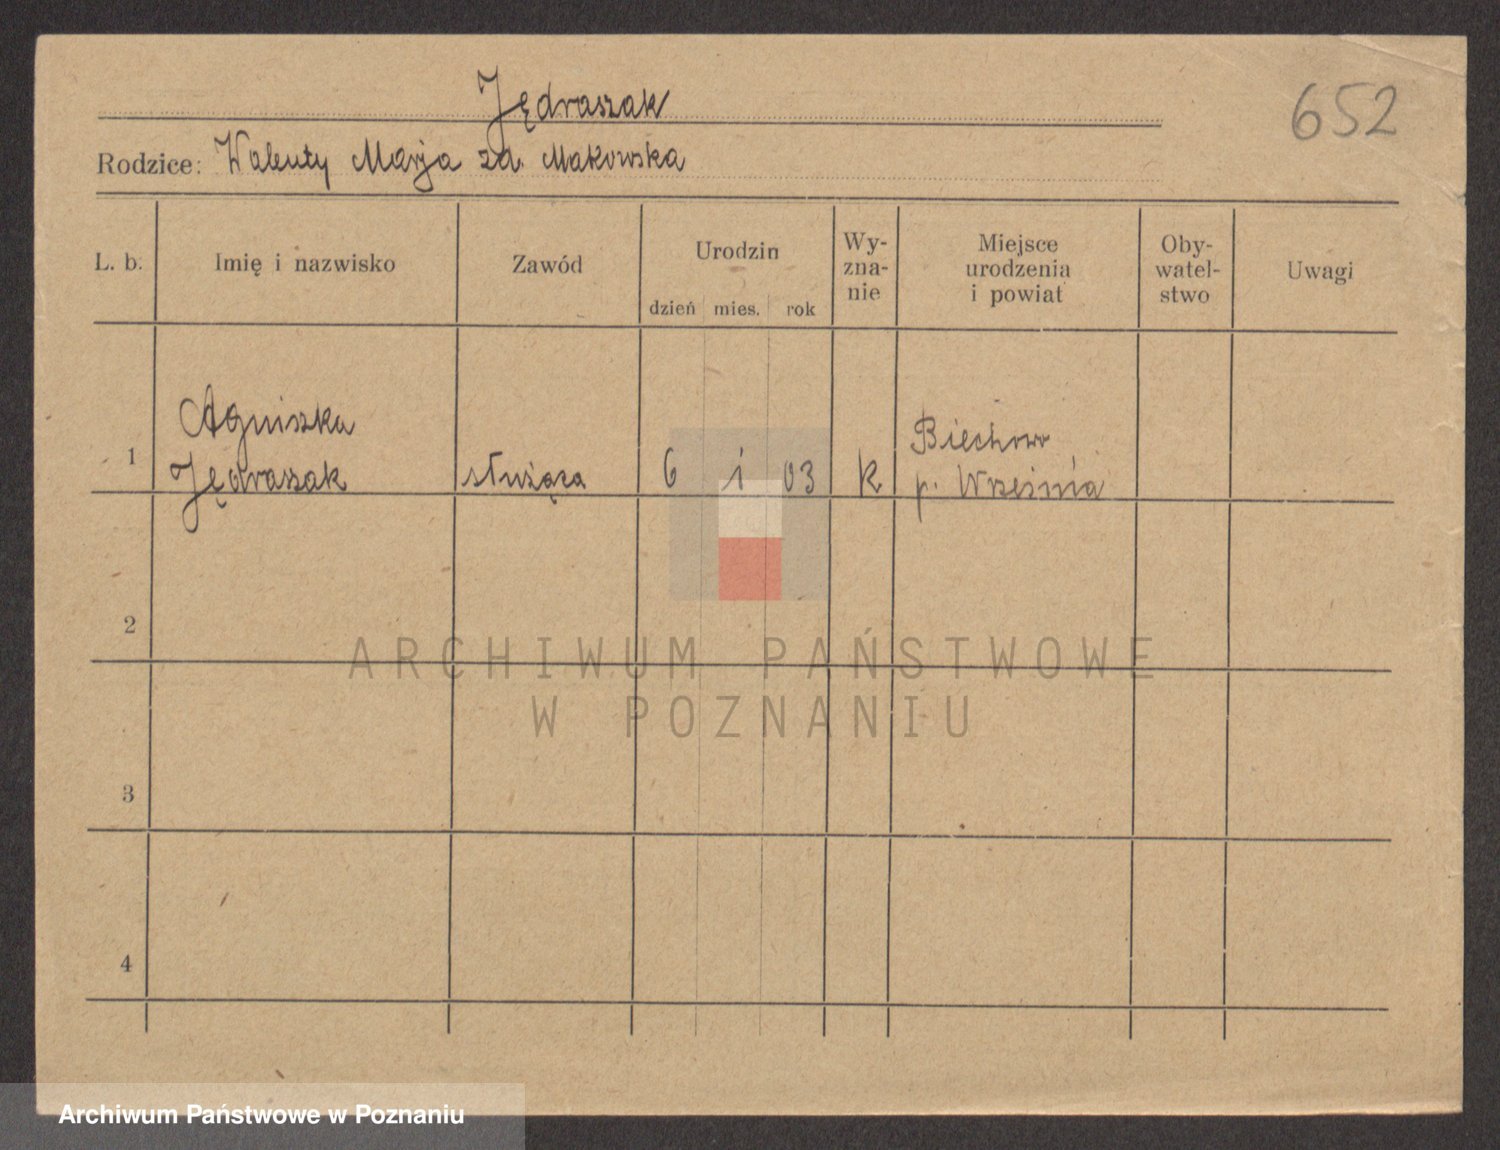 Jędraszak
652
Rodzice: Walenty Marja zd. Makowska
L. b.
Imię i nazwisko
Zawód
Urodzin
dzień mies. rok
Wy-
zna-
nie
Miejsce
urodzenia
i powiat
Oby-
watel-
stwo
Uwagi
1
Agniszka
Jędraszak
służąca
6 i 03
k
Biechowo
p. Września
2
3
4
ARCHIWUM PAŃSTWOWE
W POZNANIU
Archiwum Państwowe w Poznaniu